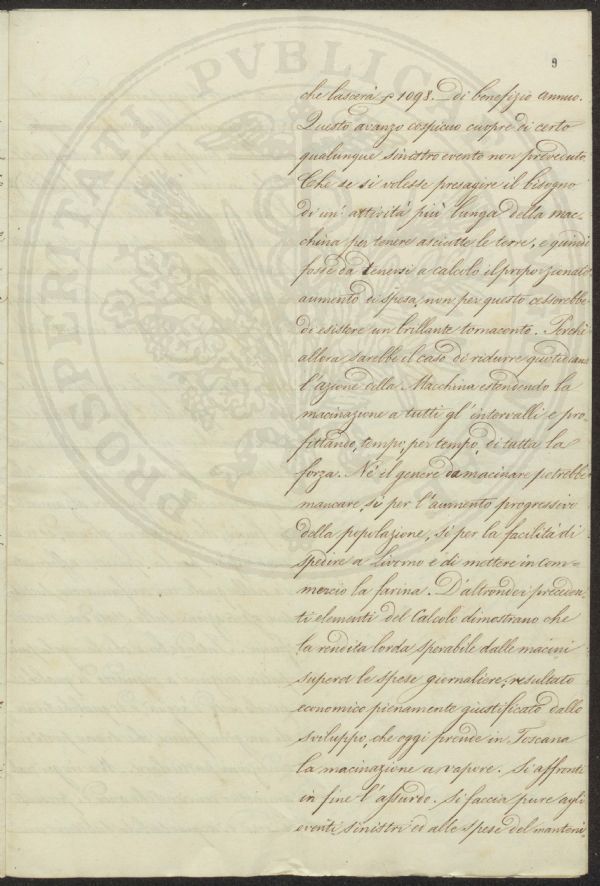 9
che lascerà p 1098. Di benefizio annuo.
Questo avanzo cospicuo cuopre di certo
qualunque sinistro evento non preveduto.
Che se si volesse presagire il bisogno
di un' attività più lunga della mac=
china per tenere asciutte le terre, e quindi
fosse da tenersi a calcolo il proporzionale
aumento di spesa, non per questo cesserebbe
di esistere un brillante tornaconto. Perchè
allora sarebbe il caso di ridurre quotidiana
l'azione della Macchina estendendo la
macinazione a tutti gl' intervalli e pro=
fittando, tempo, per tempo, di tutta la
forza. Nè il genere da macinare potrebbe
mancare, sì per l'aumento progressivo
della popolazione, sì per la facilità di
spedire a Livorno e di mettere in com=
mercio la farina. D'altronde i preceden=
ti elementi del Calcolo dimostrano che
la rendita lorda sperabile dalle macini
supera le spese giornaliere, resultato
economico pienamente giustificato dallo
sviluppo, che oggi prende in Toscana
la macinazione a vapore. Si affronti
in fine l'assurdo. Si faccia pure agli
eventi sinistri ed alle spese del manteni
PROSPERITATI PVBLICAE